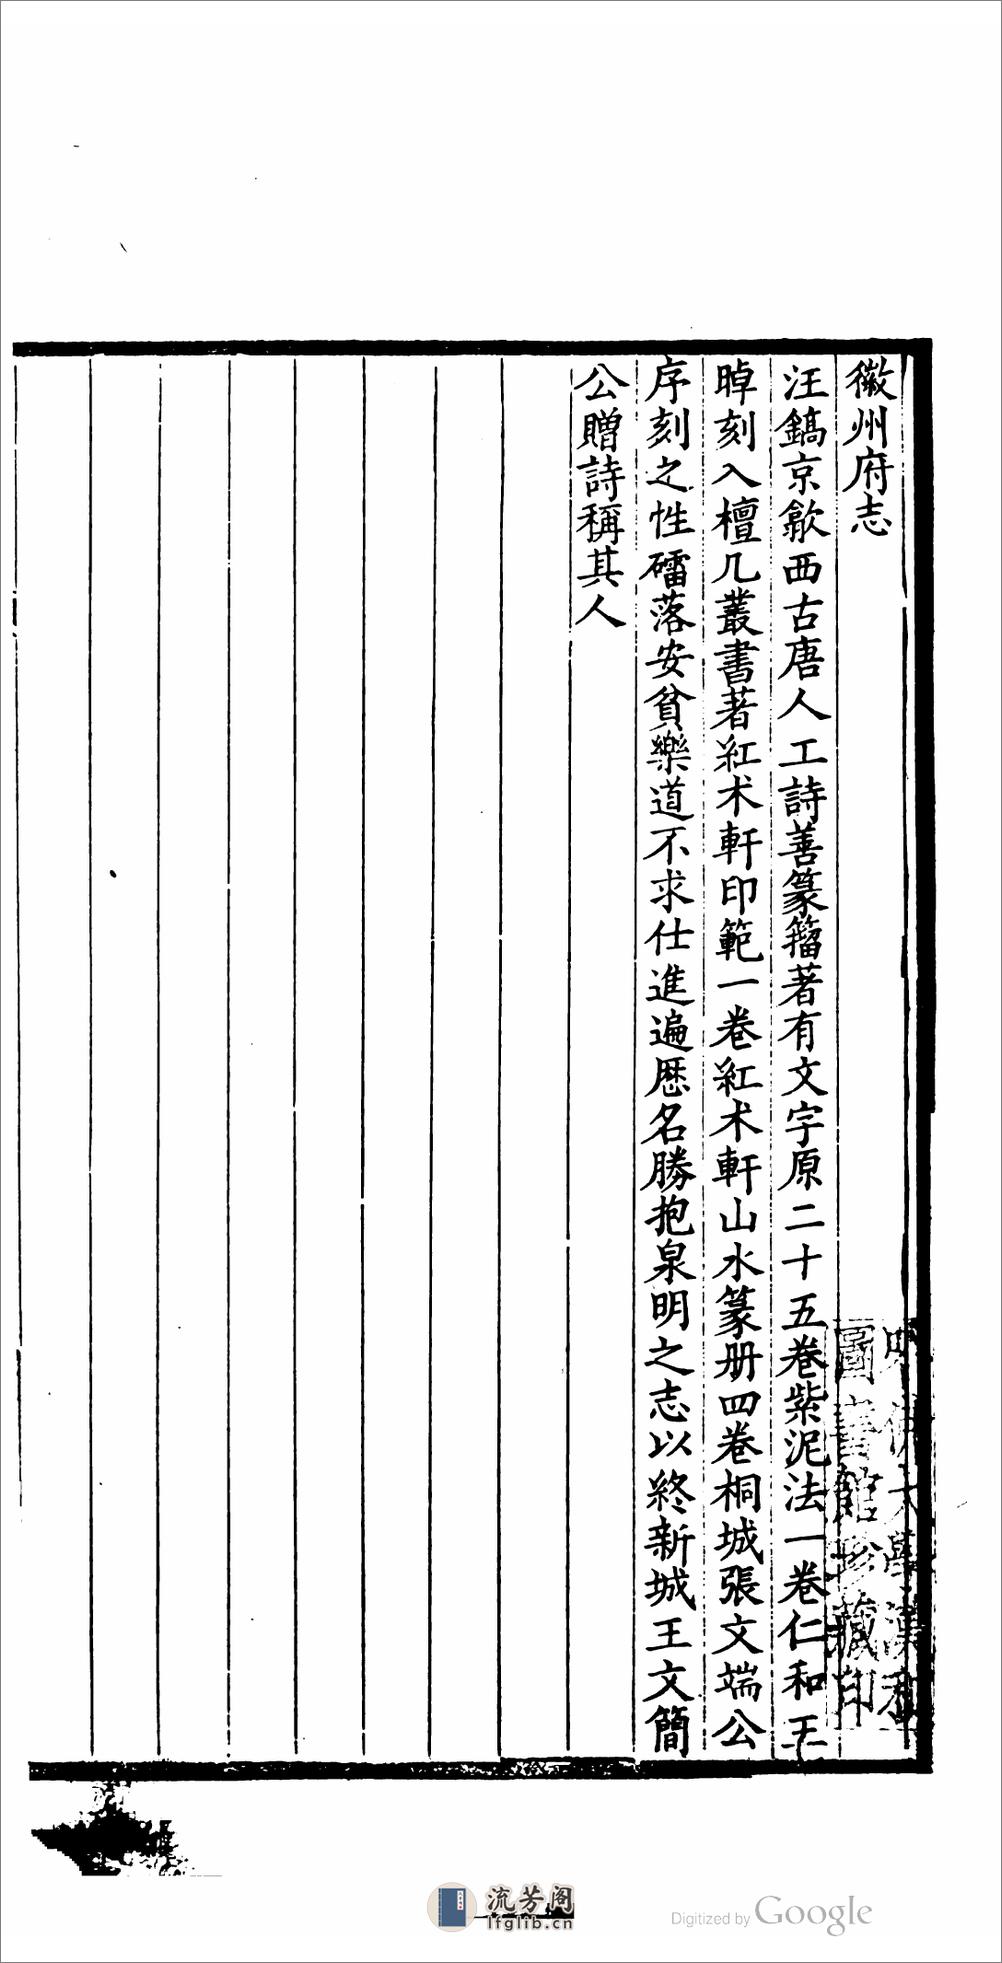 徽州府志
汪鎬京歙西古唐人工詩善篆籀著有文字原二十五卷紫泥法一卷仁和王
晫刻入檀几叢書著紅术軒印範一卷紅术軒山水篆册四卷桐城張文端公
序刻之性礌落安貧樂道不求仕進遍歷名勝抱泉明之志以終新城王文簡
公贈詩稱其人
大學漢和
圖書館珍藏印
流芳阁
lfglib.cn
Digitized by Google